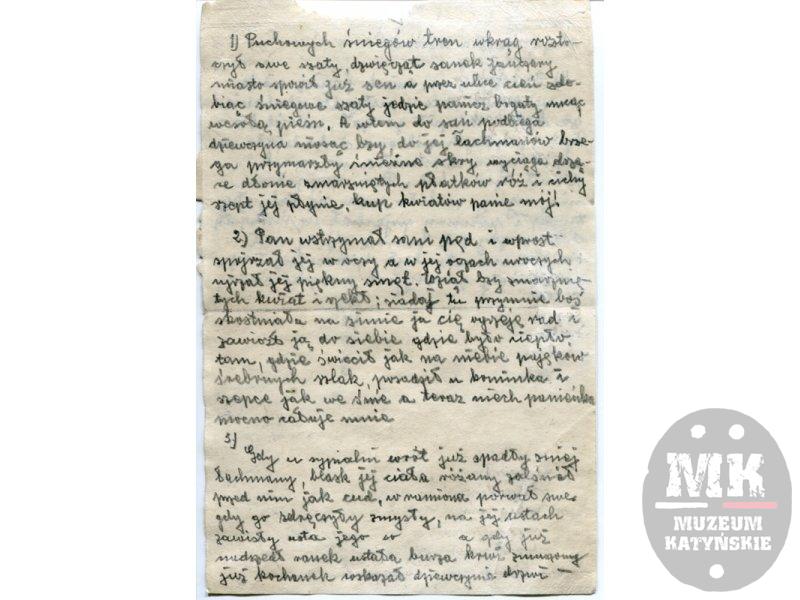 1) Puchowych śniegów tren wkrąg rozto-
czył swe szaty, dzwięczał sanek
miasto spowił już sen a przez ulice cień zdo-
biąc śniegowe szaty jedzie panicz bogaty nucąc
wesołą pieśń. A wtem do sań podbiega
dziewczyna niosąc bzy do jej łachmanów brze-
ga przymarzły śnieżne skry wyciąga drżą-
ce dłonie zmarzniętych płatków róż i cichy
szept jej płynie, kup kwiatów panie mój!
2) Pan wstrzymał sani pęd i wprost
spojrzał jej w oczy a w jej oczach uroczych
ujrzał jej piękny smęt. Wziął bzy zmarznię-
tych kwiat i rzekł; siadaj tu przy mnie boś
skostniała na zimie ja cię ogrzeję rad i
zawiózł ją do siebie gdzie było ciepło
tam, gdzie świecił jak na niebie pająków
srebrnych szlak, posadził u kominka i
szepce jak we śnie a teraz niech panienka
mocno całuje mnie
3)
Gdy u sypialni wrót już opadły z niej
łachmany, blask jej ciała różany zalśnił
przed nim jak cud, w ramiona porwał swe
gdy go zdręczyły zmysły, na jej ustach
zawisły usta jego w a gdy już
nadszedł ranek ustała burza krwi znużony
już kochanek wskazał dziewczynie drzwi —
MK
MUZEUM
KATYŃSKIE